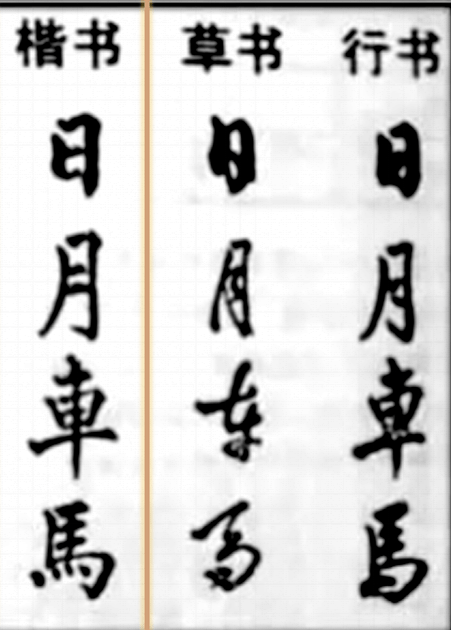 楷书 草书 行书
日 日 日
月 月 月
車 车 車
馬 马 馬